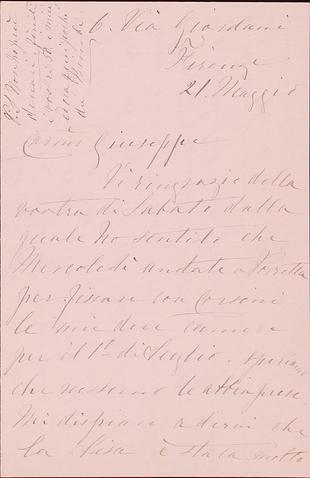 6. Via Giordani
Firenze
21. Maggio
Caro Giuseppe
Vi ringrazio della
vostra di Sabato dalla
quale ho sentito che
Mercoledì andate a Porretta
per fissare con Corsini
le mie due camere
per il 1º di Luglio. speriamo
che nessuno le abbia prese.
Mi dispiace a dirvi che
la Lisa è stata molto